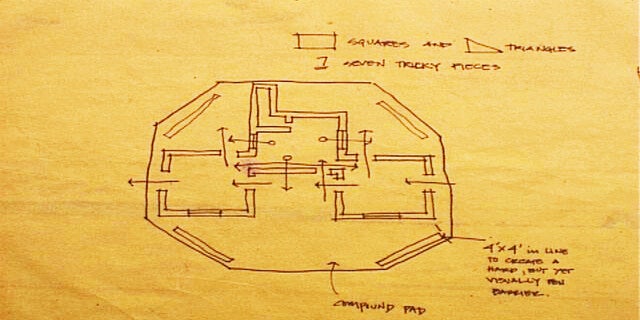 SQUARES AND TRIANGLES
1 SEVEN TRICKY PIECES
4'x4' in LINE
TO CREATE A
HARD, BUT YET
VISUALLY
BARRIER.
COMPOUND PAD